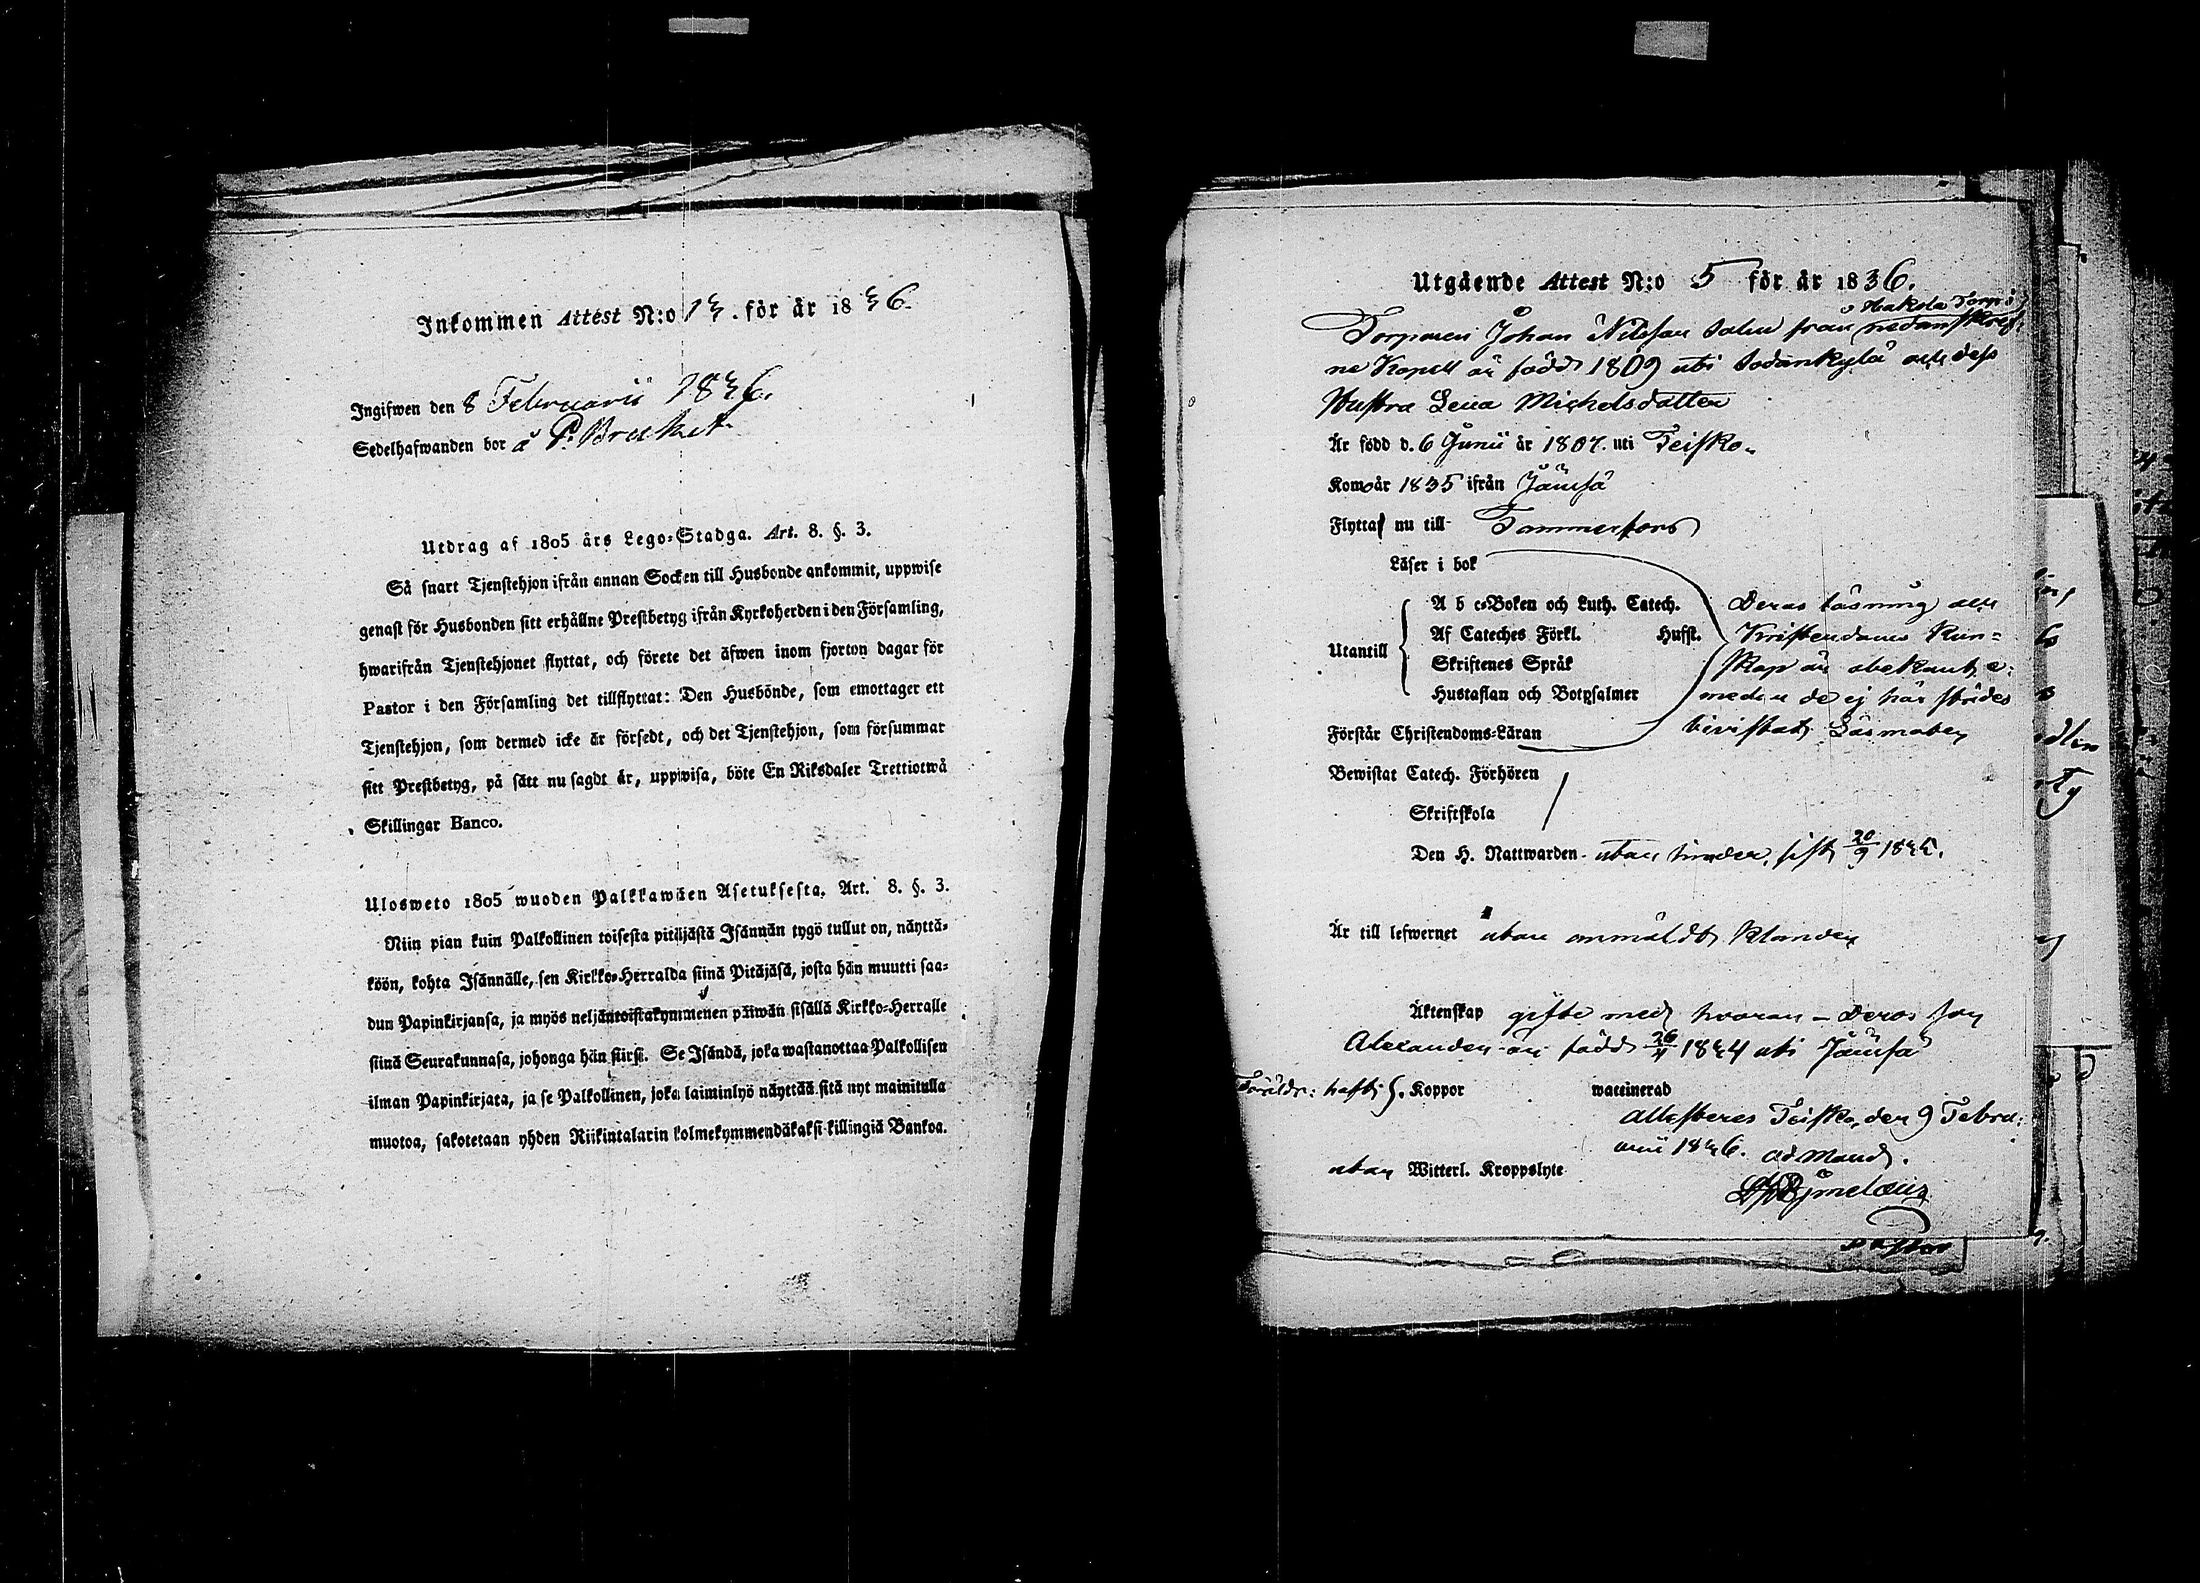 Inkommen Attest N:o 13. för år 1836.
Ingifwen den 8 Februarii 1836.
Sedelhafwanden bor å P. Bruket
Utdrag af 1805 års Lego-Stadga. Art. 8. §. 3.
Så snart Tjenstehjon ifrån annan Socken till Husbonde ankommit, uppwise
genast för Husbonden sitt erhållne Prestbetyg ifrån Kyrkoherden i den Församling,
hwarifrån Tjenstehjonet flyttat, och förete det äfwen inom fjorton dagar för
Pastor i den Församling det tillflyttat: Den Husbonde, som emottager ett
Tjenstehjon, som dermed icke är försedt, och det Tjenstehjon, som försummar
sitt Prestbetyg, på sätt nu sagdt är, uppwisa, böte En Riksdaler Trettiotwå
Skillingar Banco.
Ulosweto 1805 wuoden Palkkawäen Asetuksesta. Art. 8. §. 3.
Niin pian kuin Palkollinen toisesta pitäjästä Isännän tygö tullut on, näyttä-
köön, kohta Isännälle, sen Kirkko-Herralda siinä Pitäjäsä, josta hän muutti saa-
dun Papinkirjansa, ja myös neljäntoistakymmenen päiwän sisällä Kirkko-Herralle
siinä Seurakunnasa, johonga hän siirsi. Se Isändä, joka wastanottaa Palkollisen
ilman Papinkirjata, ja se Palkollinen, joka laiminlyö näyttää sitä nyt mainitulla
muotoa, sakotetaan yhden Riikintalarin kolmekymmendäkaksi killingiä Bankoa.
Utgående Attest N:o 5 för år 1836.
Hakola Torp i
Torparen Johan Nilsson Salin från nedanskref-
ne Kapell är född 1809 uti Sodankylä och dess
Hustru Lena Michelsdotter
Är född d. 6 Junii år 1807. uti Teisko.
Komo år 1835 ifrån Jämsä
Flytta nu till Tammerfors
Läser i bok
A b c-Boken och Luth. Catech. Deras läsning och
Af Cateches Förkl. Hufst. Kristendoms Kun-
Utantill
Skriftenes Språk skap är obekant, e-
Hustaflan och Botpsalmer medan de ej här städes
Förstår Christendoms-Läran bivistat Läsmöten
Bewistat Catech. Förhören
Skriftskola
Den H. Nattwarden utan hinder, sist 20/9 1835.
Är till lefwernet utan anmäldt klander
Äktenskap gifte med hvaran – Deras son
Alexander är född 26/11 1834 uti Jämsä
Föräldr: haft s. Koppor waccinerad
Attesteres Teisko, den 9 Febru-
arii 1836. ad mand.
utan Witterl. Kroppslyte